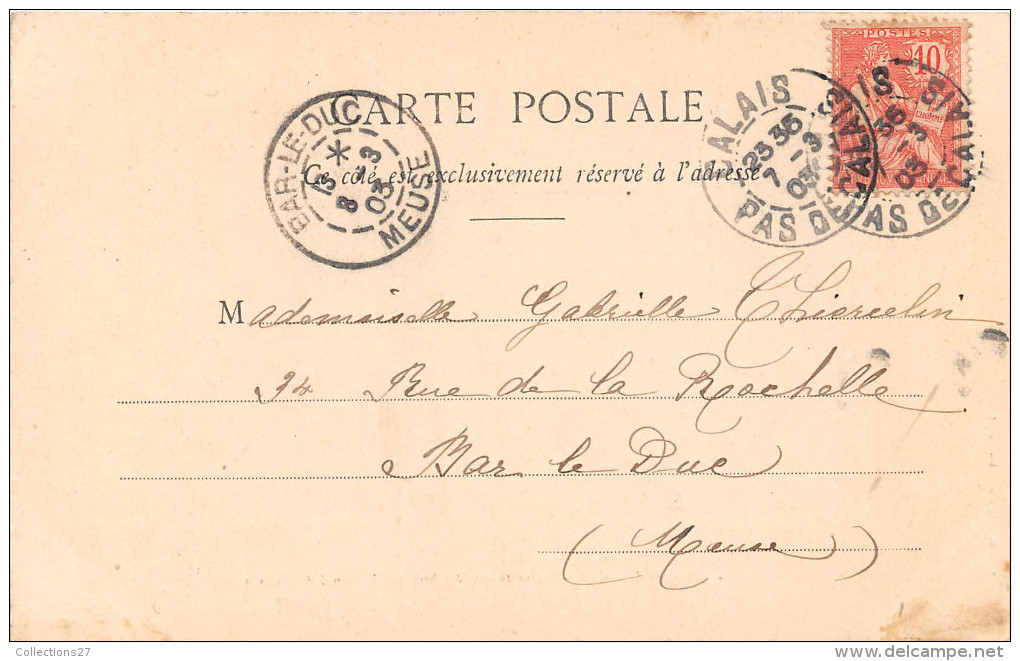 POSTES
10
CARTE POSTALE
Ce côté est exclusivement réservé à l'adresse
BAR-LE-DUC
*
8 -3
03
MEUSE
CALAIS
23 35
7 -3
03
PAS DE CALAIS
CALAIS
35
-3
03
PAS DE CALAIS
Mademoiselle Gabrielle Thiercelin
34 Rue de la Rochelle
Bar le Duc
(Meuse)
Collections27